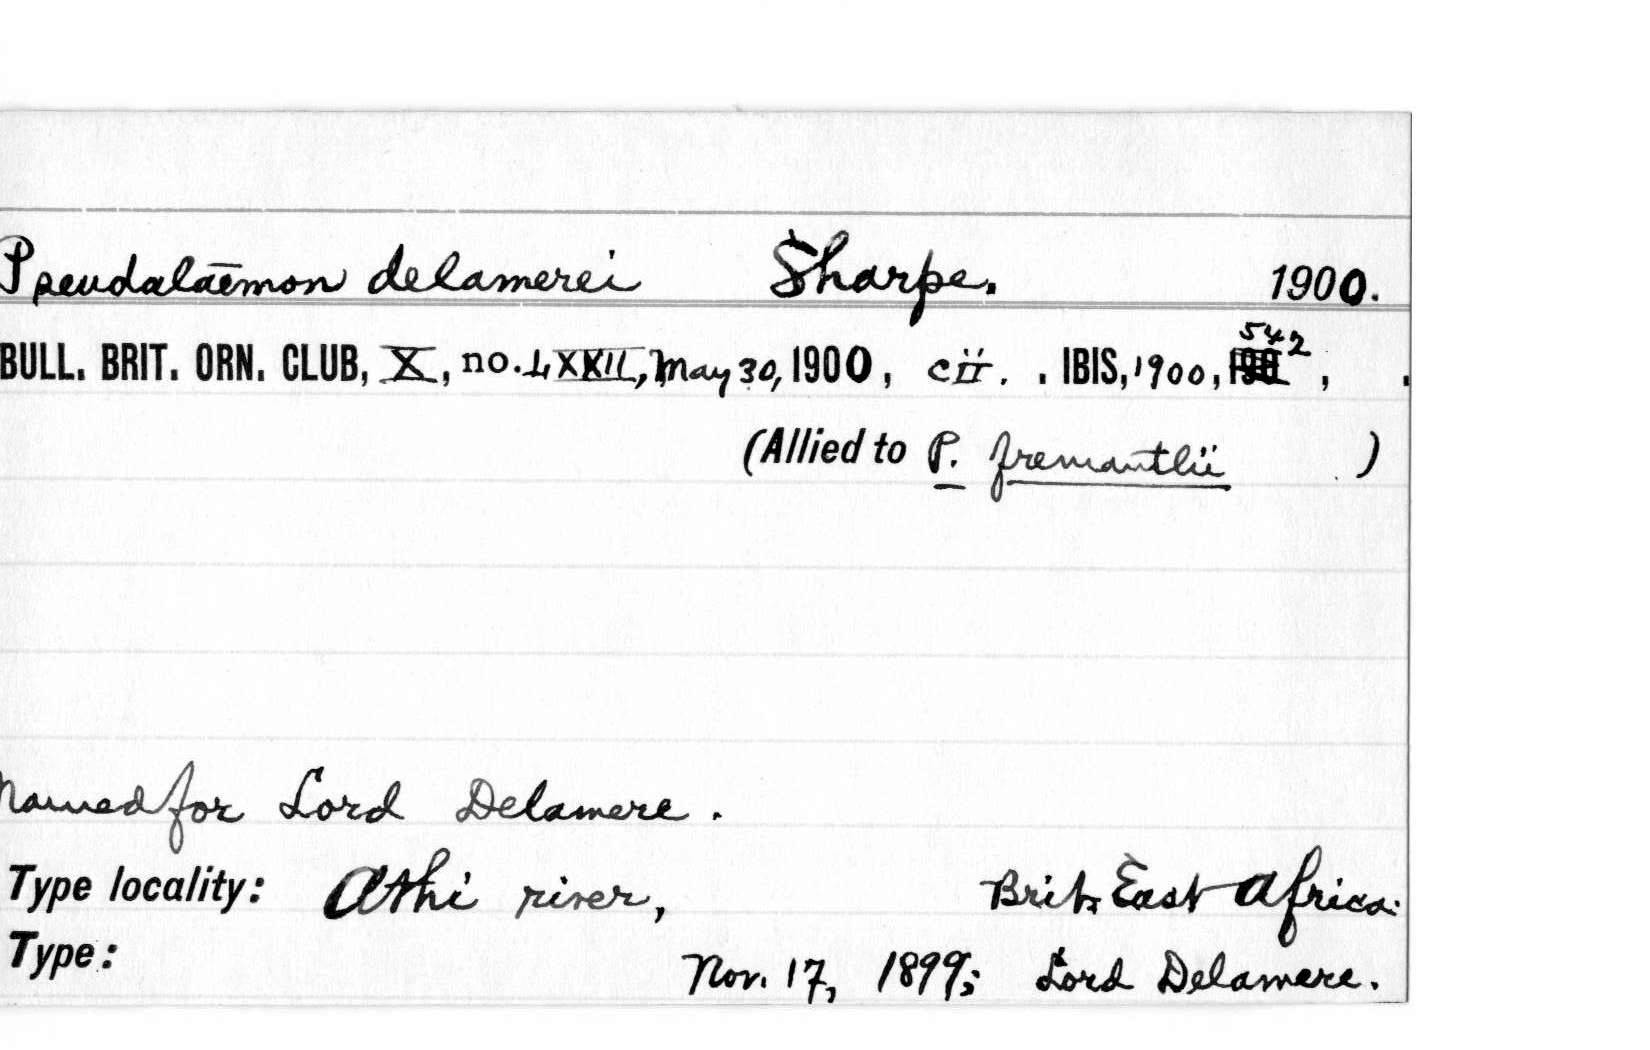 Pseudalaēmon delamerei Sharpe. 1900.
BULL. BRIT. ORN. CLUB, X, no. LXXII, May 30, 1900, cii. . IBIS, 1900, 542, .
(Allied to P. fremantlii )
Named for Lord Delamere.
Type locality: Athi river, Brit. East Africa.
Type: Nov. 17, 1899; Lord Delamere.